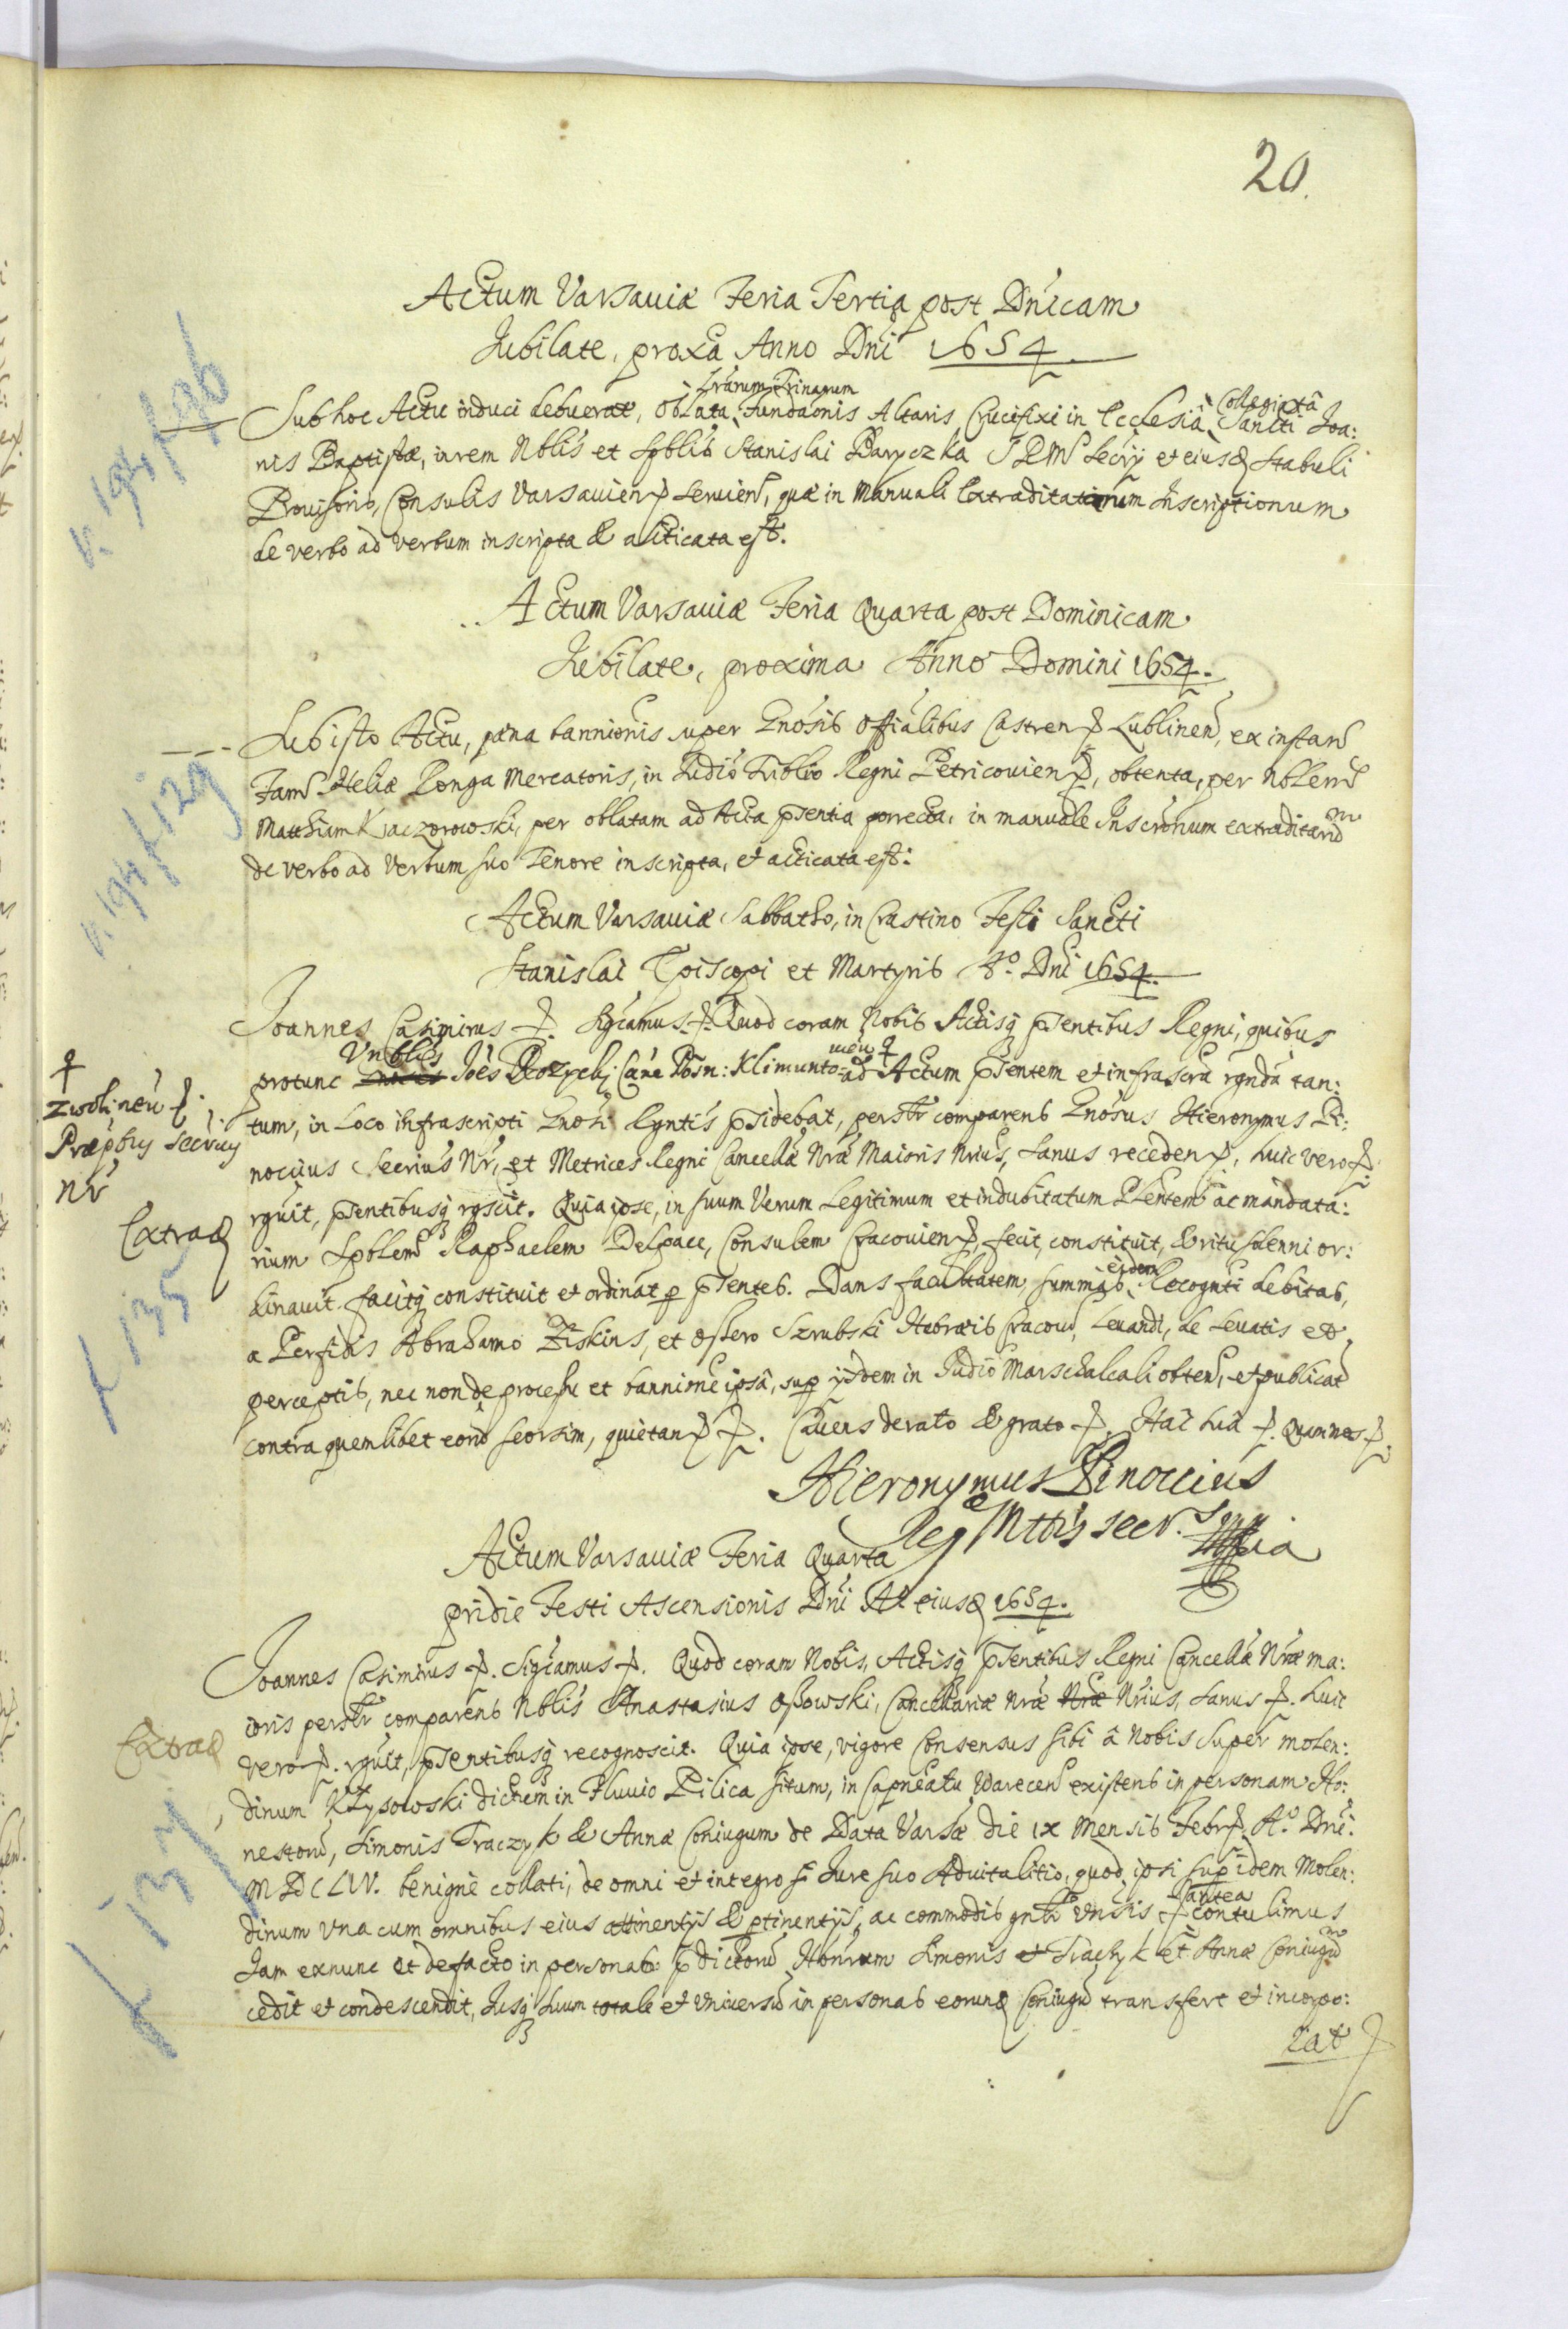 20.
Actum Varsauiæ Feria Tertia post Dnicam
Jubilate, proxa Anno Dni 1654
Lrarum Trinarum
Sub hoc Actu induci debuerat, Oblata Fundaonis Altaris Crucifixi in Ecclesia Collegiatâ Sancti Joa:
nis Baptistæ, in rem Nblis et Spblis Stanislai Baryczka S R M Secrij et eiusq Stabuli
Prouisoris, Consulis Varsauien Seruien, quæ in Manuali Extraditarum Inscriptionum
de verbo ad verbum inscripta & acticata est.
v. 194 f 96
Actum Varsauiæ Feria Quarta post Dominicam
Jubilate, proxima Anno Domini 1654.
Sub isto Actu, pæna bannionis super Gnosis Offialibus Castren Lublinen, ex instan
Fam Heliæ Longa Mercatoris, in Judio Tribli Regni Petricouien, obtenta, per Nblem
Matthiam Kaczorowski, per oblatam ad Acta psentia porrecta, in manuale Inscronum extraditaru
de verbo ad verbum suo Tenore inscripta, et acticata est.
v. 194 f 129
Actum Varsauiæ Sabbatho, in Crastino Festi Sancti
Stanislai Episcopi et Martyris Ao. Dni 1654.
Joannes Casimirus Sgcamus. Quod coram Nobis Actisq psentibus Regni, quibus
protunc Vnblis Joes Rozycki Cane Posn: Klimunto- ad Actum psentem et infrascra rgnda tan:
Zwolineń
Præpbus Secrius
Nr
tum, in Loco infrascripti Gnosi Rgntis psidebat, persltr comparens Gnosus Hieronymus Pi:
noccius Secrius Nr, et Metrices Regni Cancellæ Nræ Maioris Nrius, Sanus receden, Suic vero
rguit, psentibusq rgscit. Quia ipse, in suum Verum Legitimum et indubitatum Plentem ac mandata:
Extrad
rium Spblem Raphaelem Delpace, Consulem Cracouien, fecit, constituit, & ritu solenni or:
dinauit facitq constituit et ordinat p psentes. Dans facultatem, summas eidem Recognti debitas,
a Perfidis Abrahamo Ziskins, et Ossero Szrubski Hebræis Cracou, Leuandi, de Leuatis et
perceptis, nec non de processu et bannione ipsâ, sup ijsdem in Judio Marschalcali obten, et publicat
contra quemlibet eoru seorsim, quietan. Cauens de rato & grato. Hac sua. Quam nos.
f 135
Hieronymus Pinoccius
Reg Mttis Secr.
Actum Varsauiæ Feria Quarta
pridie Festi Ascensionis Dni Ao eiusd 1654.
Joannes Casimirus. Sigcamus. Quod coram Nobis, Actisq psentibus Regni Cancellæ Nræ ma:
ioris persltr comparens Nblis Anastasius Ossowski, Cancellariæ Nræ Nræ Nrius, Sanus. Suic
Extrad
vero. rguit, psentibusq recognoscit. Quia ipse, vigore Consensus sibi â Nobis super molen:
dinum Krysowski dictum in Fluuio Pilica situm, in Capneatu Warecen existens in personam Ho:
nestoru, Simonis Traczyk & Annæ Coniugum de Data Varsæ die ix Mensis Febr, Ao. Dni.
MDCLIV. benignè collati, de omni et integro Jure suo Aduitalitio, quod ipsi sup idem Molen:
dinum vna cum omnibus eius attinentijs & ptinentijs, ac commodis gntr vnsis antea contulimus
Jam exnunc et defacto in personas pdictoru Honrum Simonis et Traczyk et Annæ Coniugu
cedit et condescendit, Jusq suum totale et vniuersu in personas eorund Coniugu transfert et incorpo:
rat
f 137